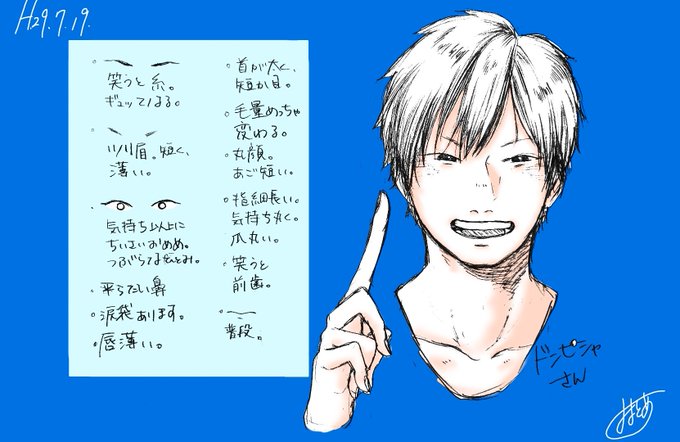 H29.7.19.
・笑うと糸。
ギュッてなる。
・川川眉。短く、
薄い。
・気持ち以上に
ちいさいおめめ。
つぶらてなひとみ。
・平らたい鼻
・涙袋あります。
・唇薄い。
・首が太く、
短か目。
・毛量めっちゃ
変わる。
・丸顔。
あご短い。
・指細長い。
気持ち丸く。
爪丸い。
・笑うと
前歯。
・普段。
ドンピシャ
さん